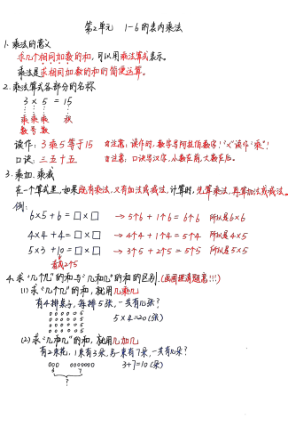 第2单元 1-6的表内乘法
1.乘法的意义
求几个相同加数的和，可以用乘法算式表示。
乘法是求相同加数的和的简便运算。
2.乘法算式各部分的名称
3 × 5 = 15
乘 乘 乘 积
数 号 数
读作：3乘5等于15 注意：读作时，数字写阿拉伯数字！“×”读作“乘”！
口诀：三五十五 注意：口诀写汉字，小数在前，大数在后。
3.乘加、乘减
在一个算式里，如果既有乘法，又有加法或减法，计算时，先算乘法，再算加法或减法。
例：
6×5+6=□×□ → 5个6+1个6=6个6 所以是6×6
4×4+4=□×□ → 4个4+1个4=5个4 所以是4×5
5×3+10=□×□ → 3个5+2个5=5个5 所以是5×5
看成2个5
4.求“几个几”的和与“几和几”的和的区别
(1)求“几个几”的和，就用几乘几
有4排桌子，每排5张，一共有几张？
5×4=20(张)
(2)求“几和几”的和，就用几加几
有2束花，1束有3朵，另一束有7朵，一共有几朵？
3+7=10(朵)
?